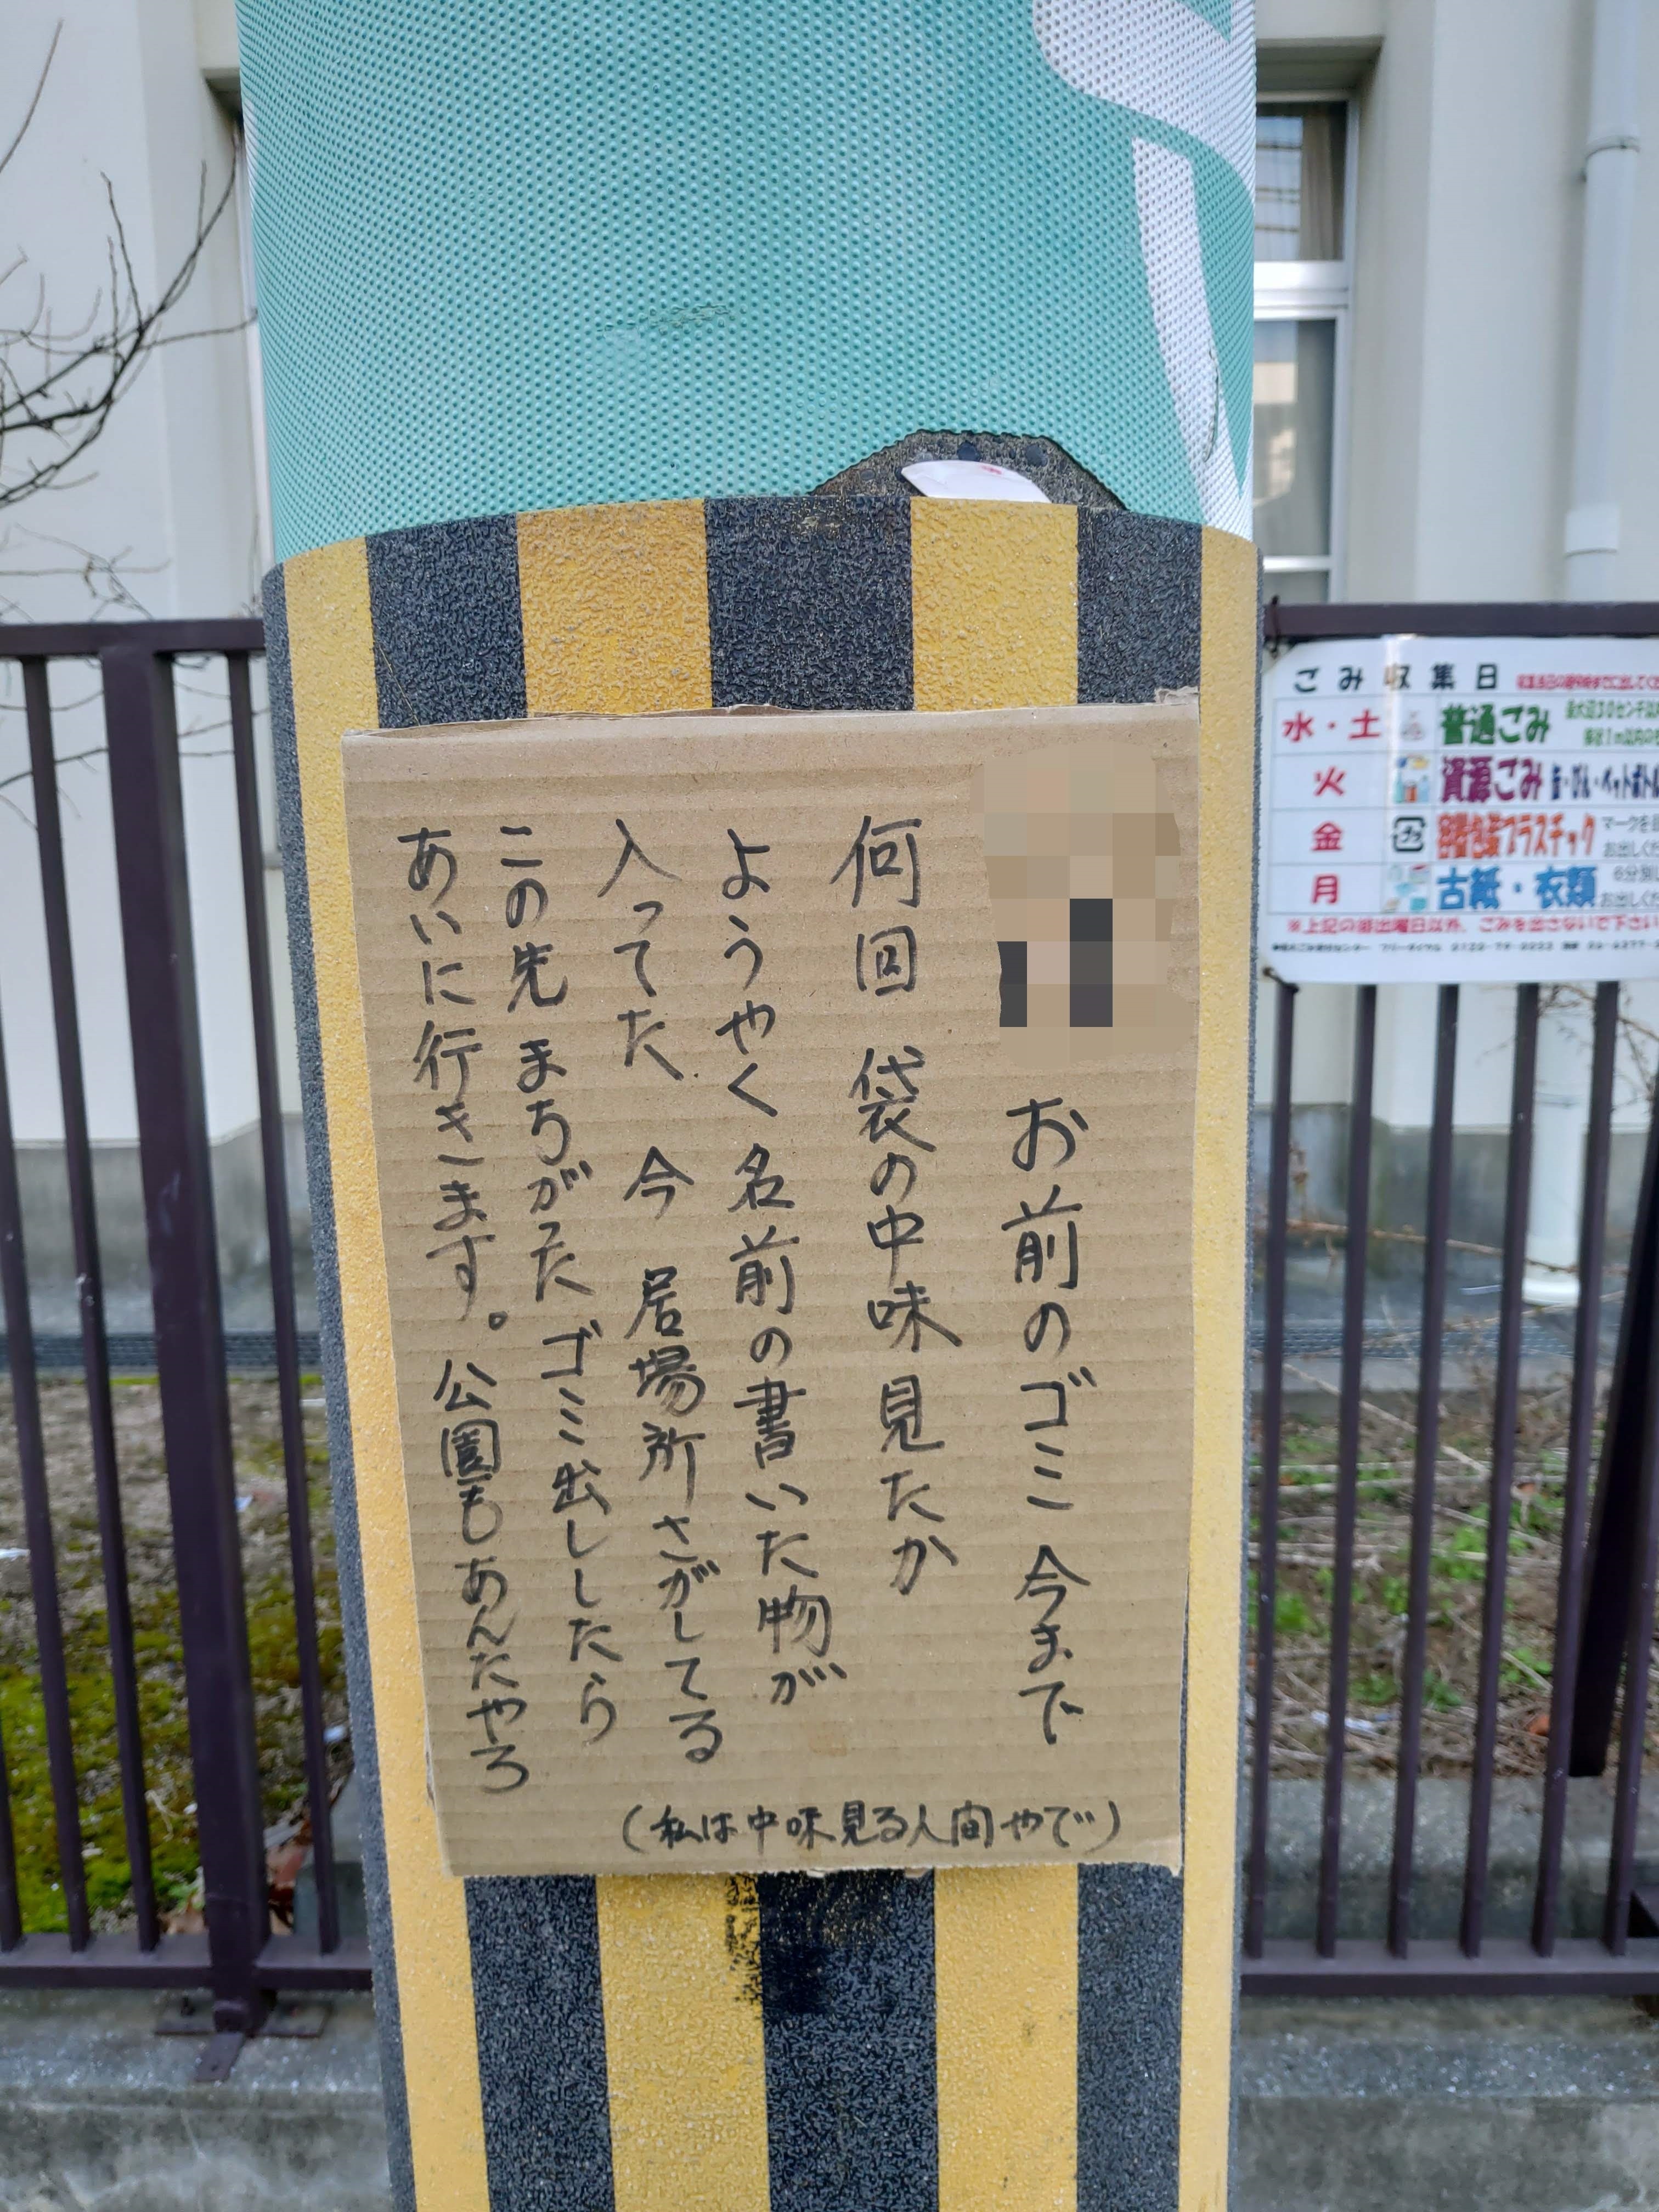 お前のゴミ 今まで
何回 袋の中味 見たか
ようやく 名前の書いた物が
入ってた 今 居場所 さがしてる
この先 まちがた ゴミ出ししたら
あいに行きます。公園もあんたやろ
(私は中味見る人間やで)
ごみ収集日
水・土 普通ごみ
火 資源ごみ 缶・びん・ペットボトル
金 容器包装プラスチック マークを
月 古紙・衣類
※上記の排出曜日以外、ごみを出さないで下さい